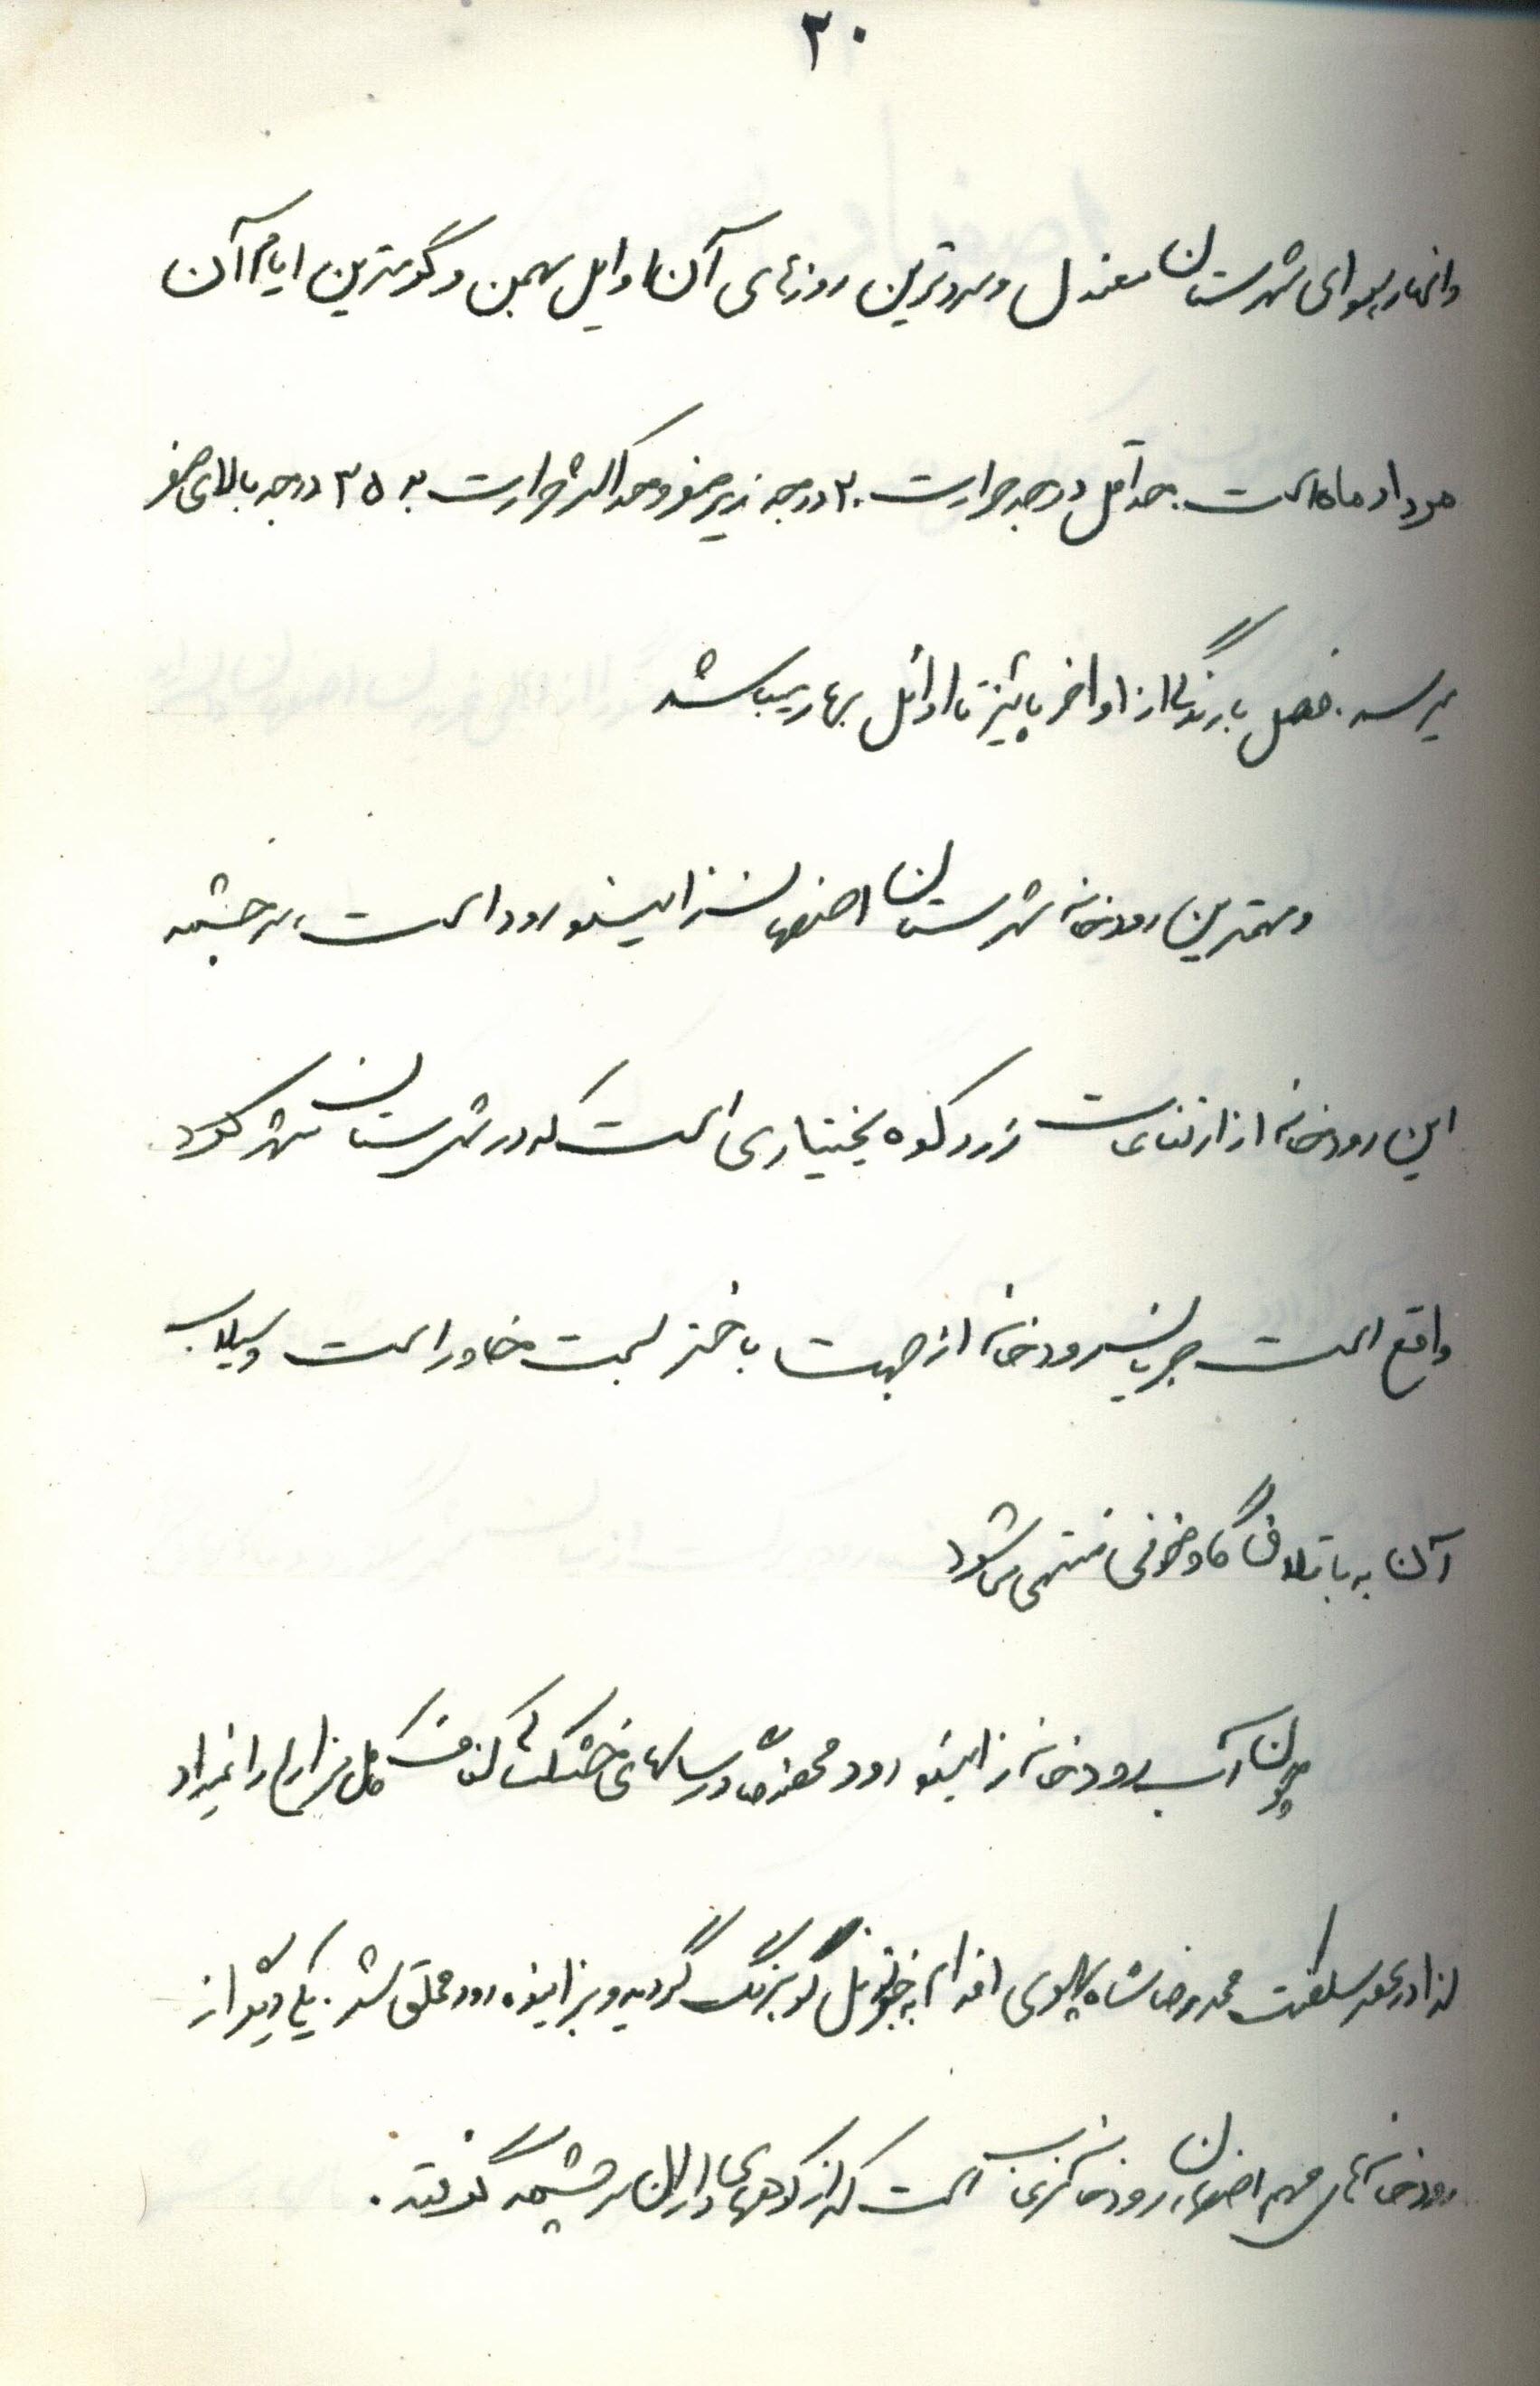 ۲۰
وانهار هوای شهرستان معتدل و سردترین روزهای آن اوایل بهمن و گرمترین ایام آن
مرداد ماه است. حداقل درجه حرارت ۲۰ درجه زیر صفر و حداکثر حرارت به ۳۵ درجه بالای صفر
میرسد. فصل بارندگی از اواخر پائیز تا اوائل بهار میباشد
و مهمترین رودخانه شهرستان اصفهان زاینده رود است، سرچشمه
این رودخانه از ارتفاعات زردکوه بختیاری است که در شهرستان شهرکرد
واقع است جریان رودخانه از جهت باختر بسمت خاور است و سیلاب
آن به باتلاق گاوخونی منتهی میشود
چون آب رودخانه زاینده رود مخصوصاً در سالهای خشک کفاف کل مزارع را نمیداد
لذا در عهد سلطنت محمدرضا شاه پهلوی اقدام به حفر تونل کوهرنگ گردید و بزاینده رود ملحق شد. یکی دیگر از
رودخانه‌های مهم اصفهان رودخانه است که از کوههای داران سرچشمه گرفته.